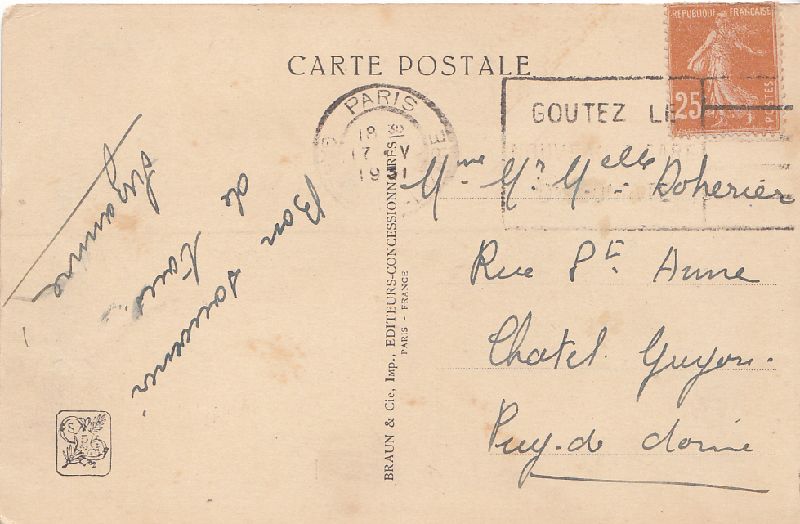 RÉPUBLIQUE FRANÇAISE
25
POSTES
CARTE POSTALE
PARIS
18
17 V
1931
GOUTEZ LE
Bon souvenir
de
tous
Suzanne
BRAUN & Cie, Imp., EDITEURS-CONCESSIONNAIRES
PARIS - FRANCE
Mme Mr Melle Doherier
Rue Ste Anne
Chatel Guyon.
Puy-de dome